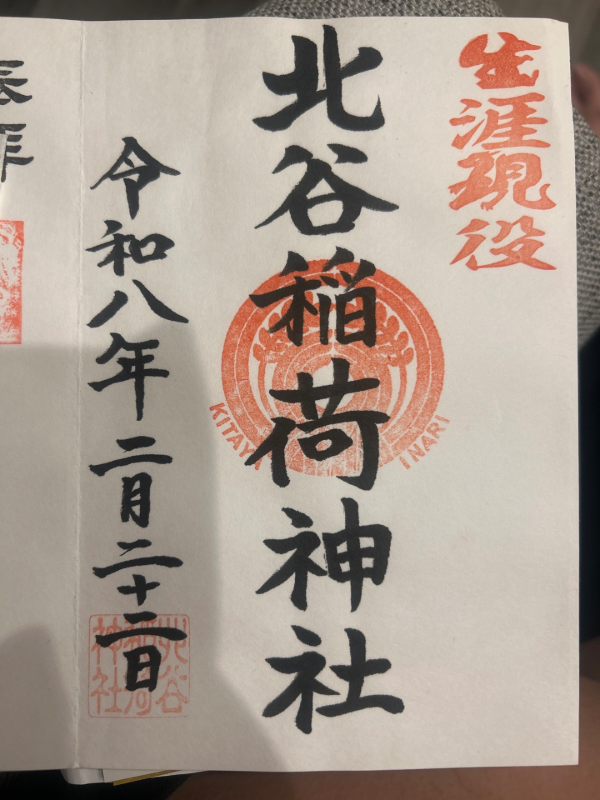 生涯現役
北谷稲荷神社
KITAYA INARI
令和八年二月二十二日
北谷
稲荷
神社
奉拝